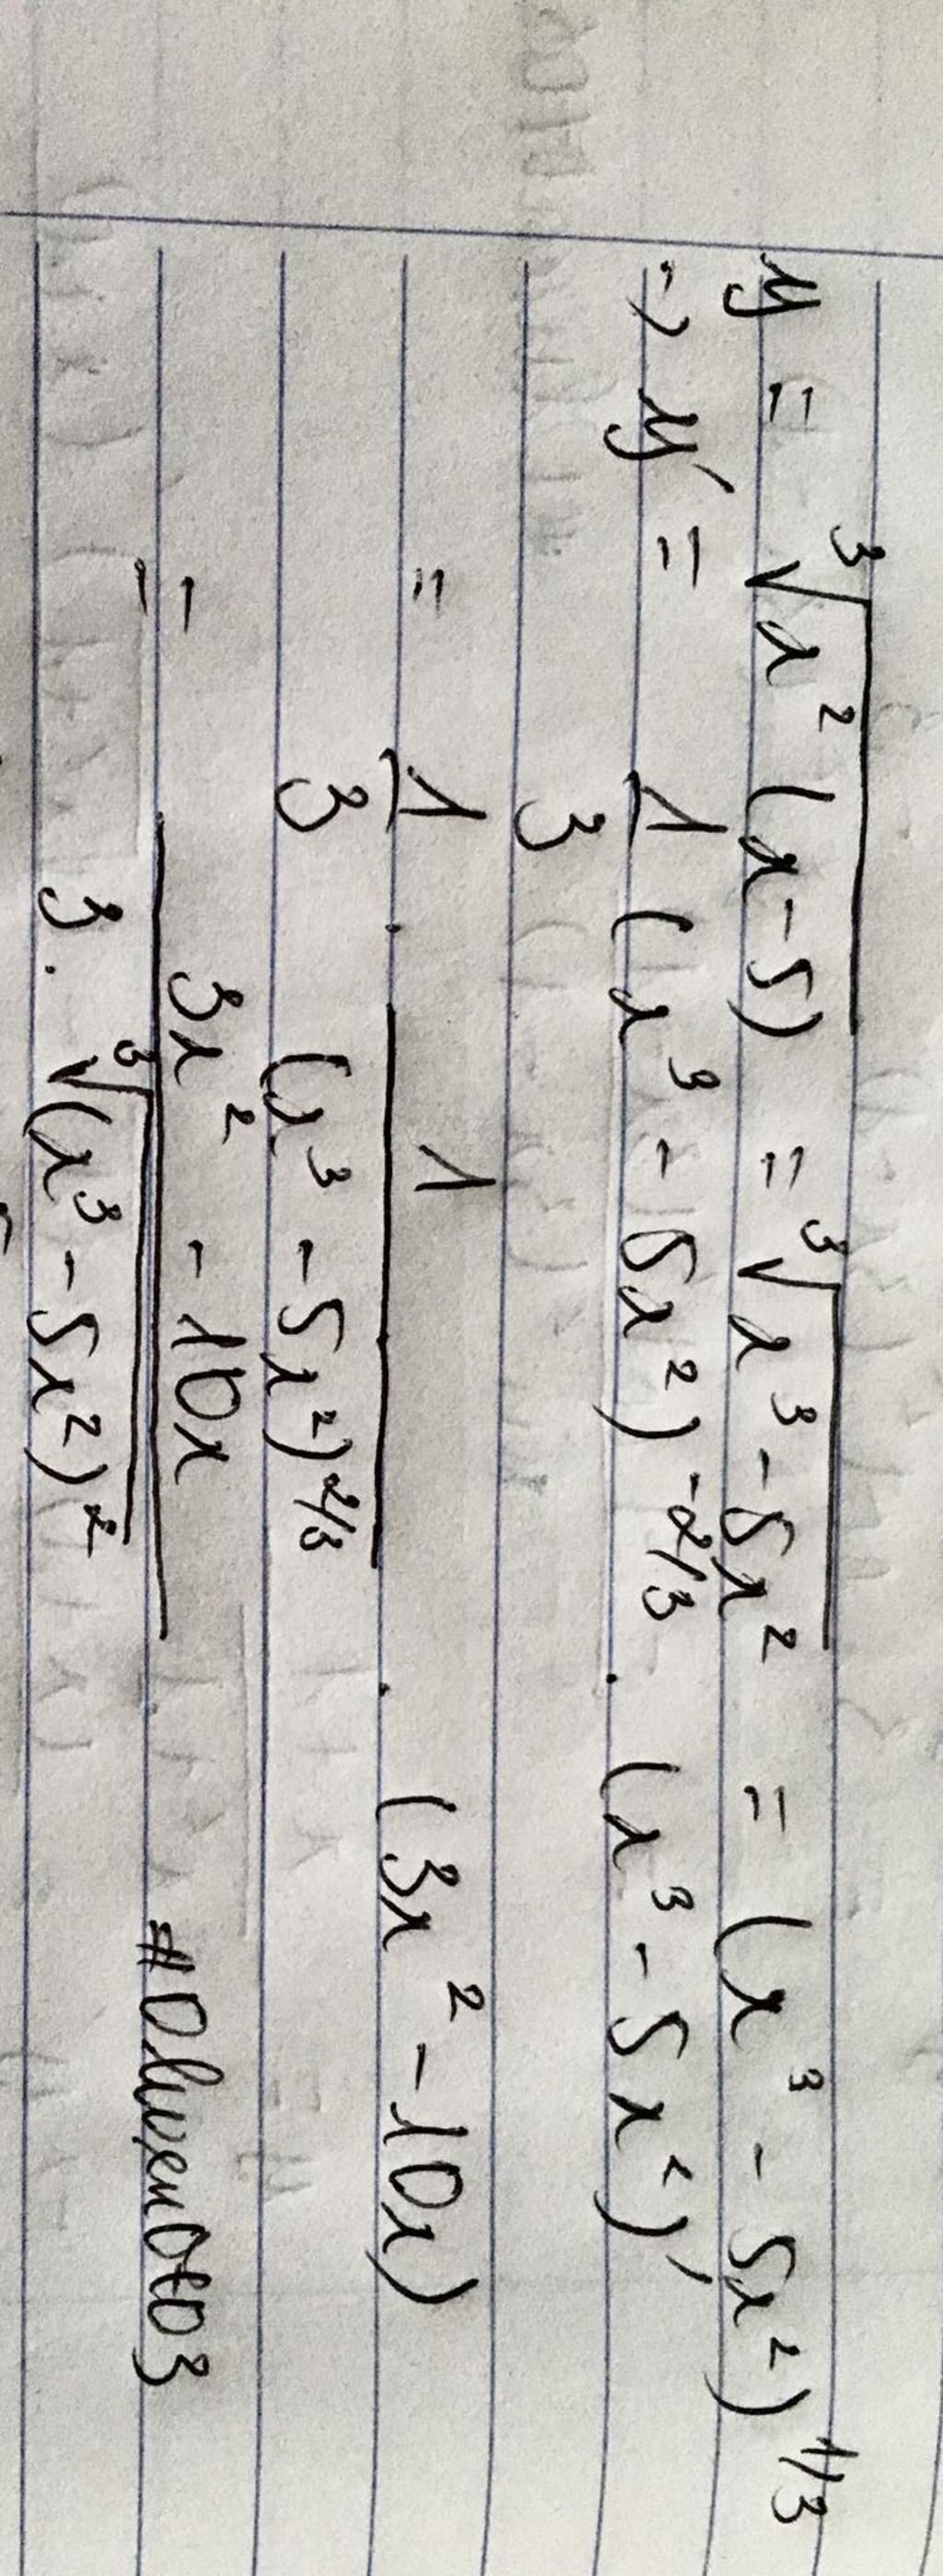 y = ∛(x²(x-5)) = ∛(x³-5x²) = (x³-5x²)^1/3
=> y' = 1/3 (x³-5x²)^-2/3 . (x³-5x²)'
= 1/3 . 1/(x³-5x²)^2/3 . (3x²-10x)
= (3x²-10x)/(3.∛(x³-5x²)²)